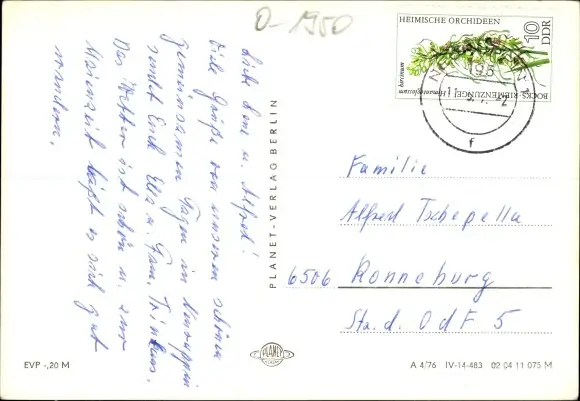 O-1950
Liebe Leni u. Alfred!
Viele Grüße von unseren schönen
gemeinsamen Tagen in Neuruppin
sendet Euch Ella u. Fam.
Das Wetter ist schön u. zur
Maienzeit läßt es sich gut
wandern.
PLANET-VERLAG BERLIN
HEIMISCHE ORCHIDEEN
10
DDR
BOCKS-RIEMENZUNGE
Himantoglossum
hircinum
f
Familie
Alfred Tschepella
6506 Ronneburg
Str. d. OdF 5
EVP -,20 M
PLANET
VERLAG
A 4/76 IV-14-483 02 04 11 075 M